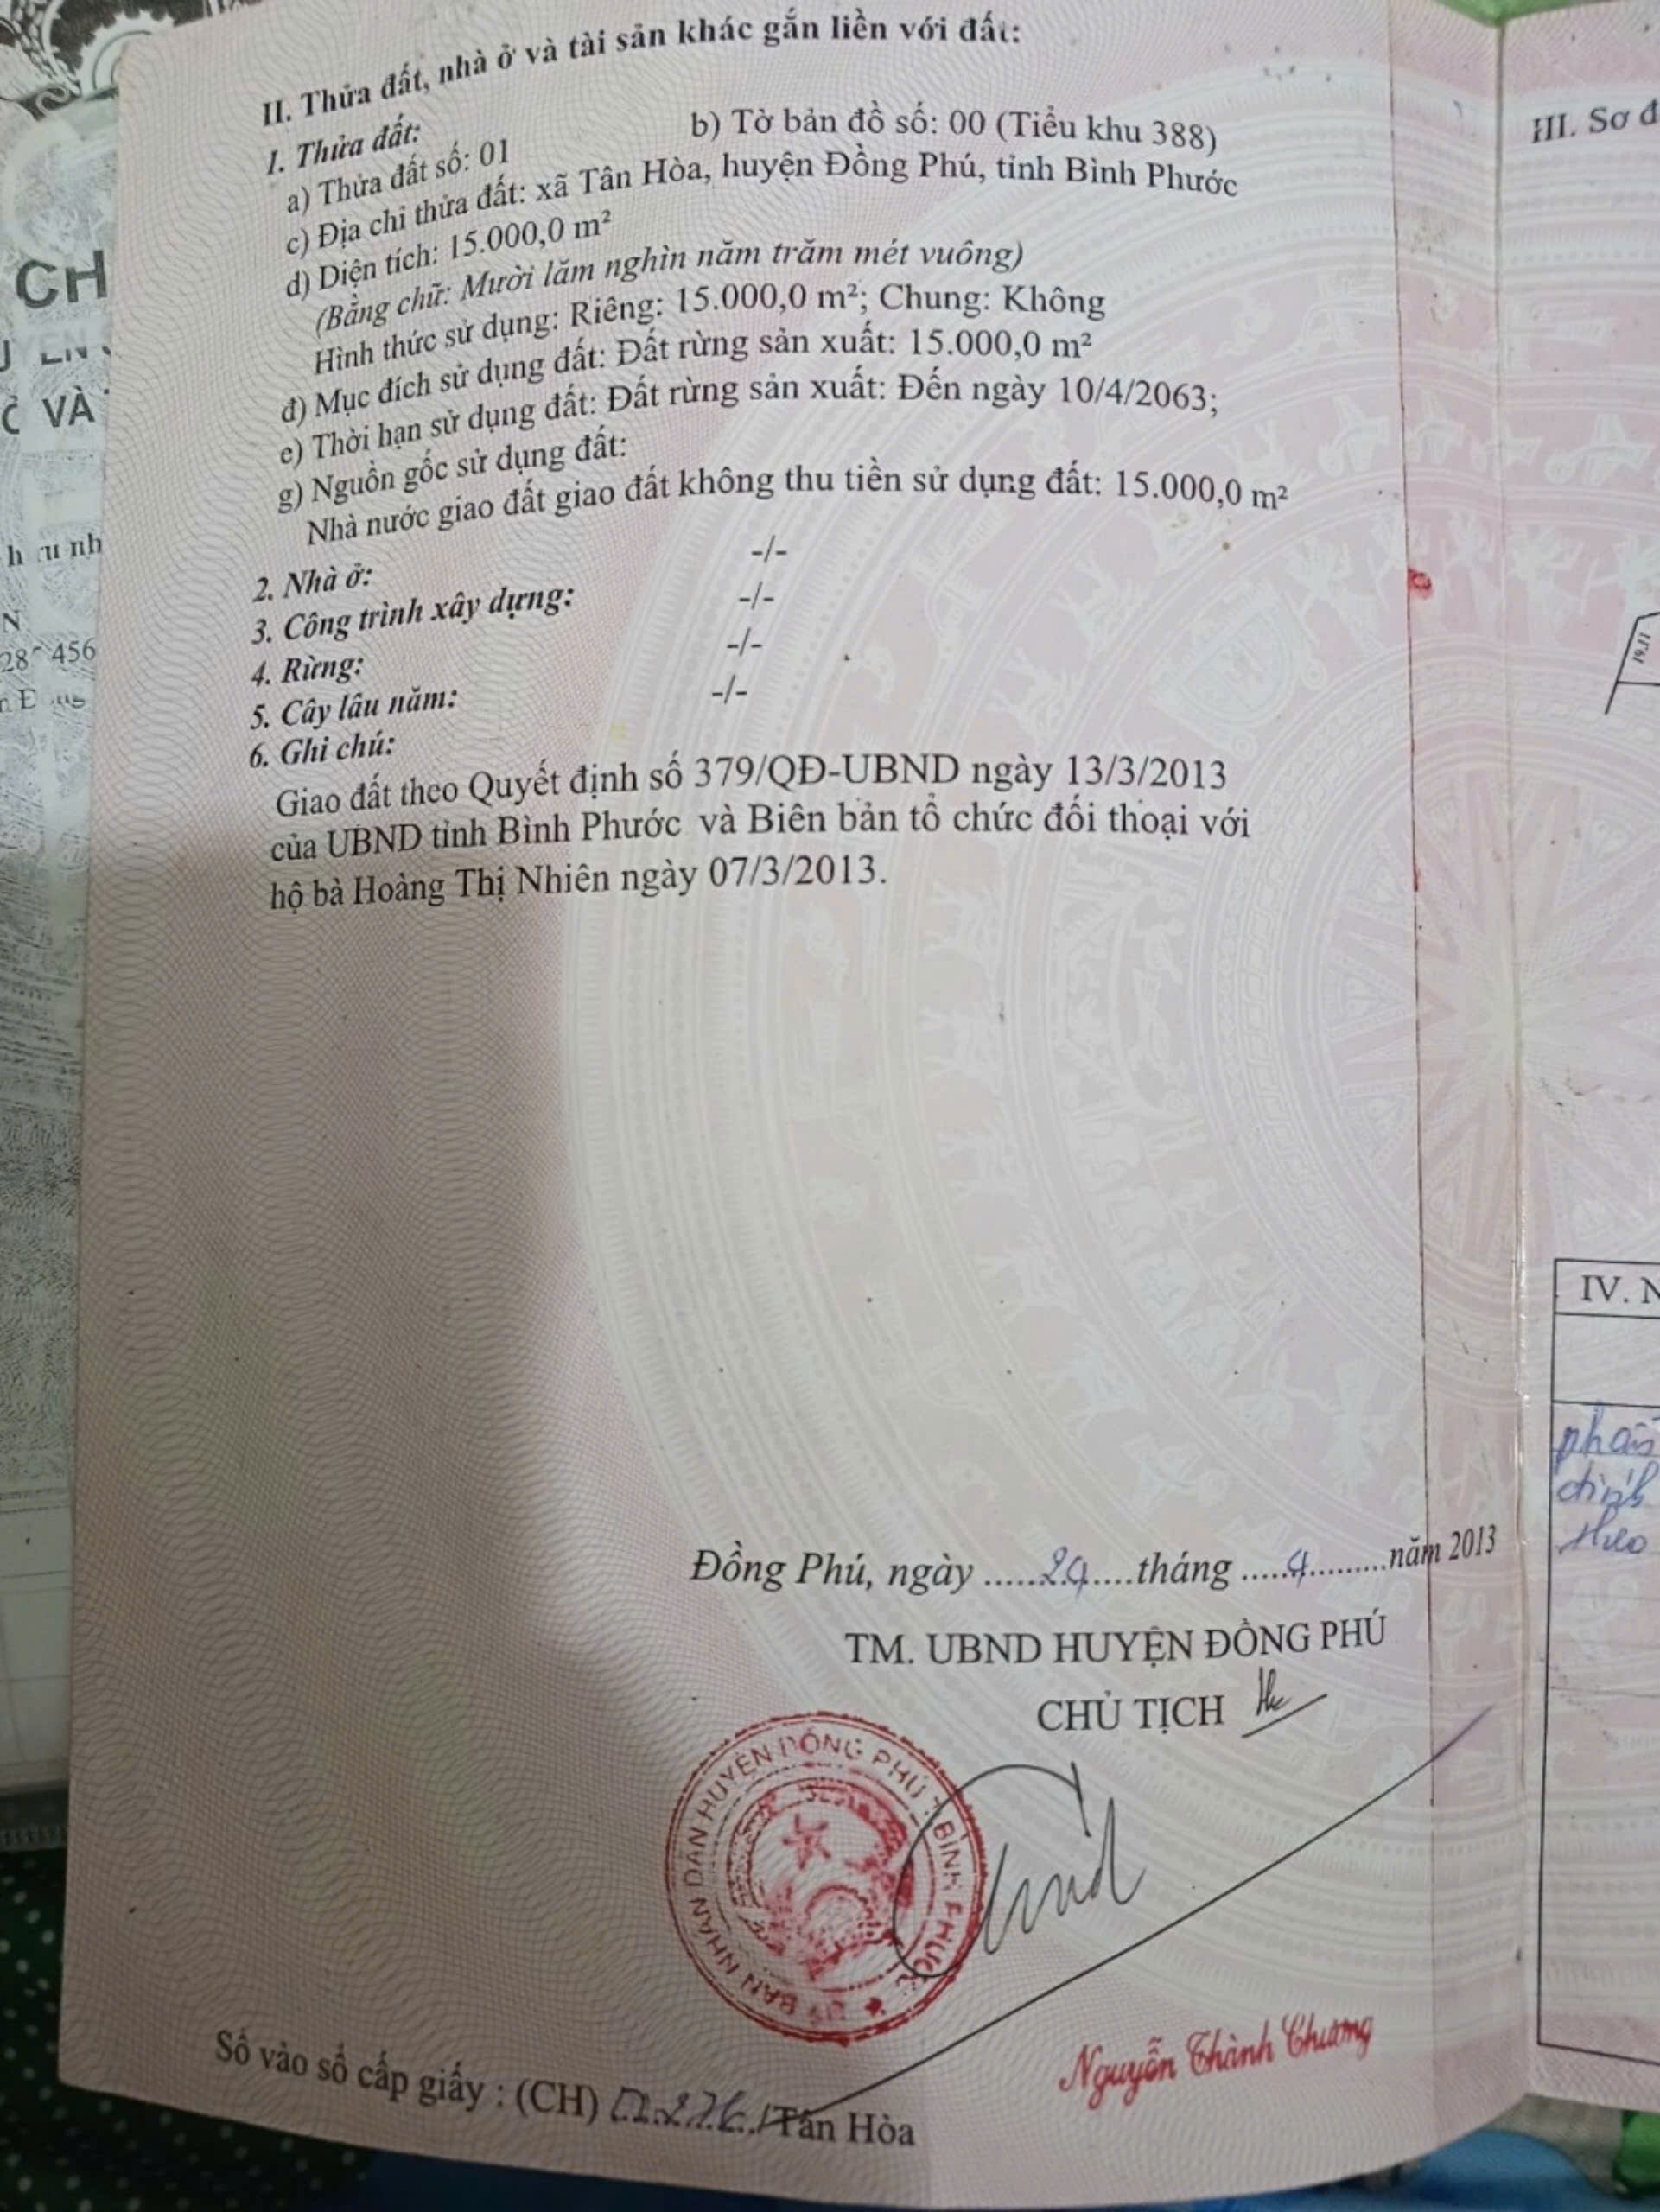 II. Thửa đất, nhà ở và tài sản khác gắn liền với đất:
1. Thửa đất:
a) Thửa đất số: 01 b) Tờ bản đồ số: 00 (Tiểu khu 388)
c) Địa chỉ thửa đất: xã Tân Hòa, huyện Đồng Phú, tỉnh Bình Phước
d) Diện tích: 15.000,0 m²
(Bằng chữ: Mười lăm nghìn năm trăm mét vuông)
Hình thức sử dụng: Riêng: 15.000,0 m²; Chung: Không
đ) Mục đích sử dụng đất: Đất rừng sản xuất: 15.000,0 m²
e) Thời hạn sử dụng đất: Đất rừng sản xuất: Đến ngày 10/4/2063;
g) Nguồn gốc sử dụng đất:
Nhà nước giao đất giao đất không thu tiền sử dụng đất: 15.000,0 m²
2. Nhà ở: -/-
3. Công trình xây dựng: -/-
4. Rừng: -/-
5. Cây lâu năm: -/-
6. Ghi chú:
Giao đất theo Quyết định số 379/QĐ-UBND ngày 13/3/2013
của UBND tỉnh Bình Phước và Biên bản tổ chức đối thoại với
hộ bà Hoàng Thị Nhiên ngày 07/3/2013.
Đồng Phú, ngày ......24....tháng .....4.........năm 2013
TM. UBND HUYỆN ĐỒNG PHÚ
CHỦ TỊCH
ỦY BAN NHÂN DÂN HUYỆN ĐỒNG PHÚ T. BÌNH PHƯỚC
Nguyễn Thành Chương
Số vào sổ cấp giấy : (CH) /Tân Hòa
CH
VÀ
456
III. Sơ đ
IV. N
phần
đính
theo